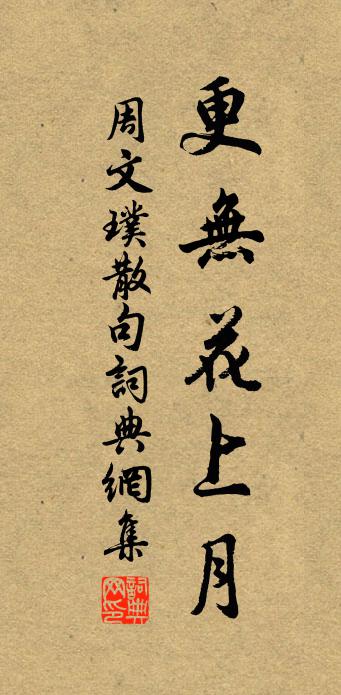 更無花上月
周文璞散句詞典網集
詞典网印